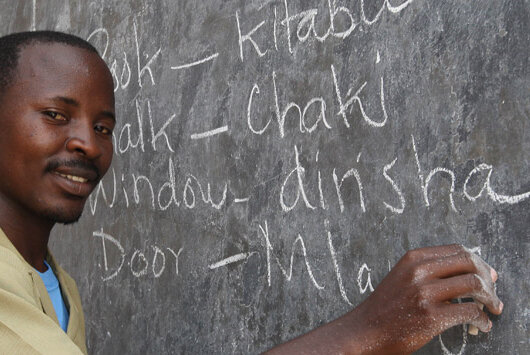 Book - kitabu
Chalk - Chaki
Window - dirisha
Door - Mla